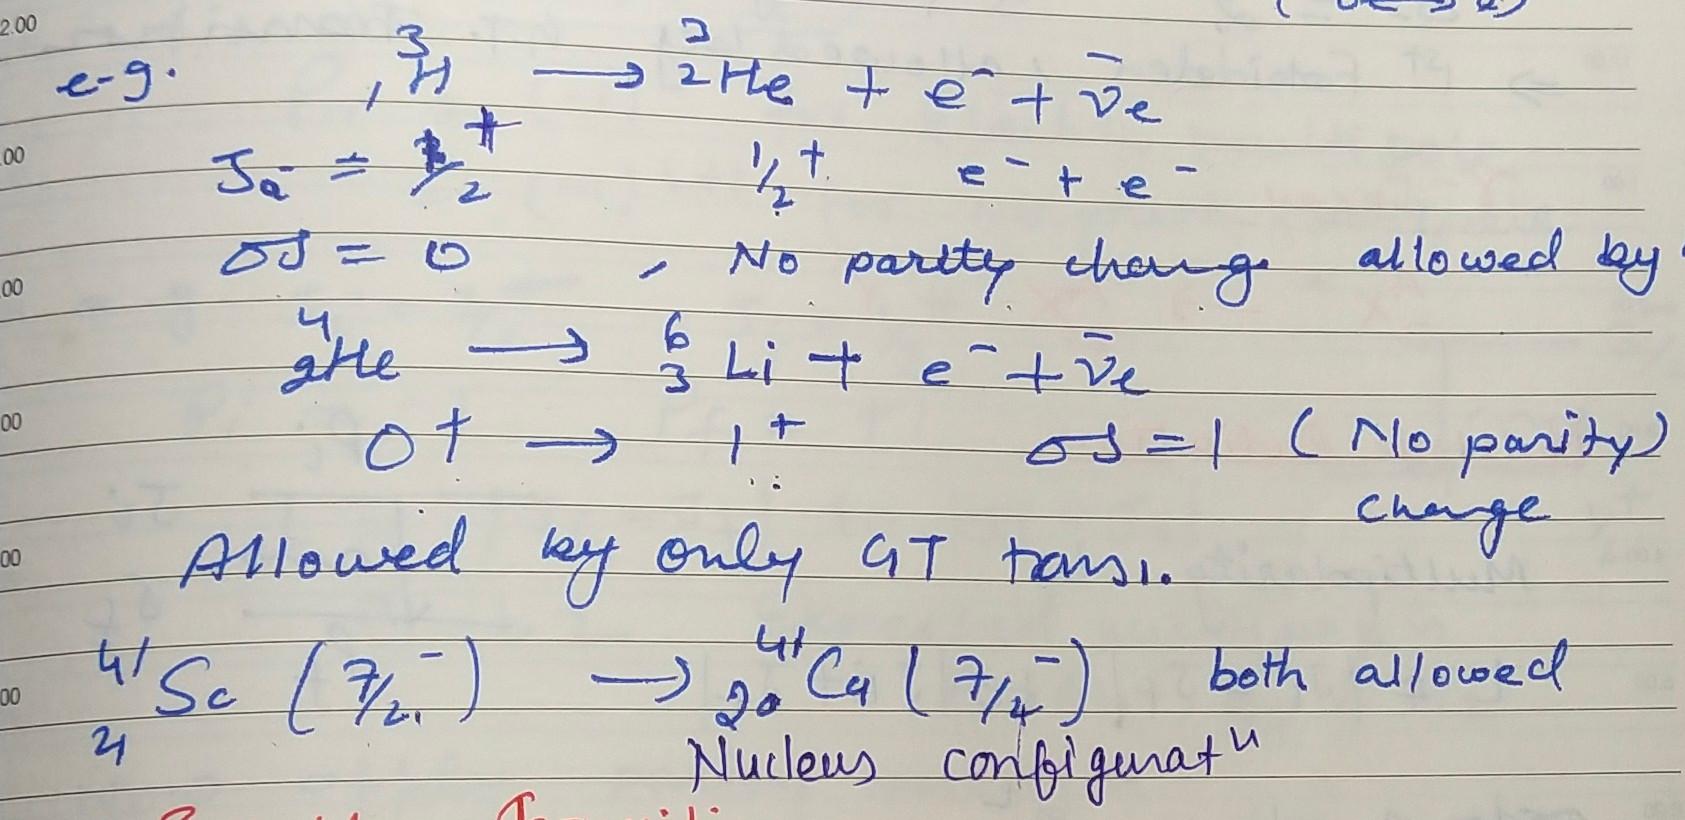 2.00
e-g. ³₁H → ³₂He + e⁻ + ν̄e
00
Ja = 1/2⁺ 1/2⁺ e⁻ + e⁻
σJ = 0 , No parity change allowed by
00
⁴₂He → ⁶₃Li + e⁻ + ν̄e
00
0⁺ → 1⁺ σJ = 1 ( No parity)
change
00
Allowed by only GT trans.
00
⁴¹₂₁Sc (7/2⁻) → ⁴¹₂₀Ca (7/4⁻) both allowed
Nucleus configuratⁿ